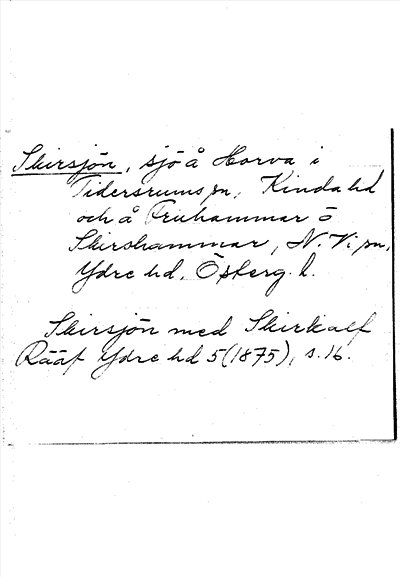 Skirsjön, sjö å Horva i
Tidersrums sn, Kinda hd
och å Fruhammar o
Skirshammar, N. Vi sn,
Ydre hd, Österg. l.
Skirsjön med Skirkalf
Rääf Ydre hd 5 (1875), s. 16.